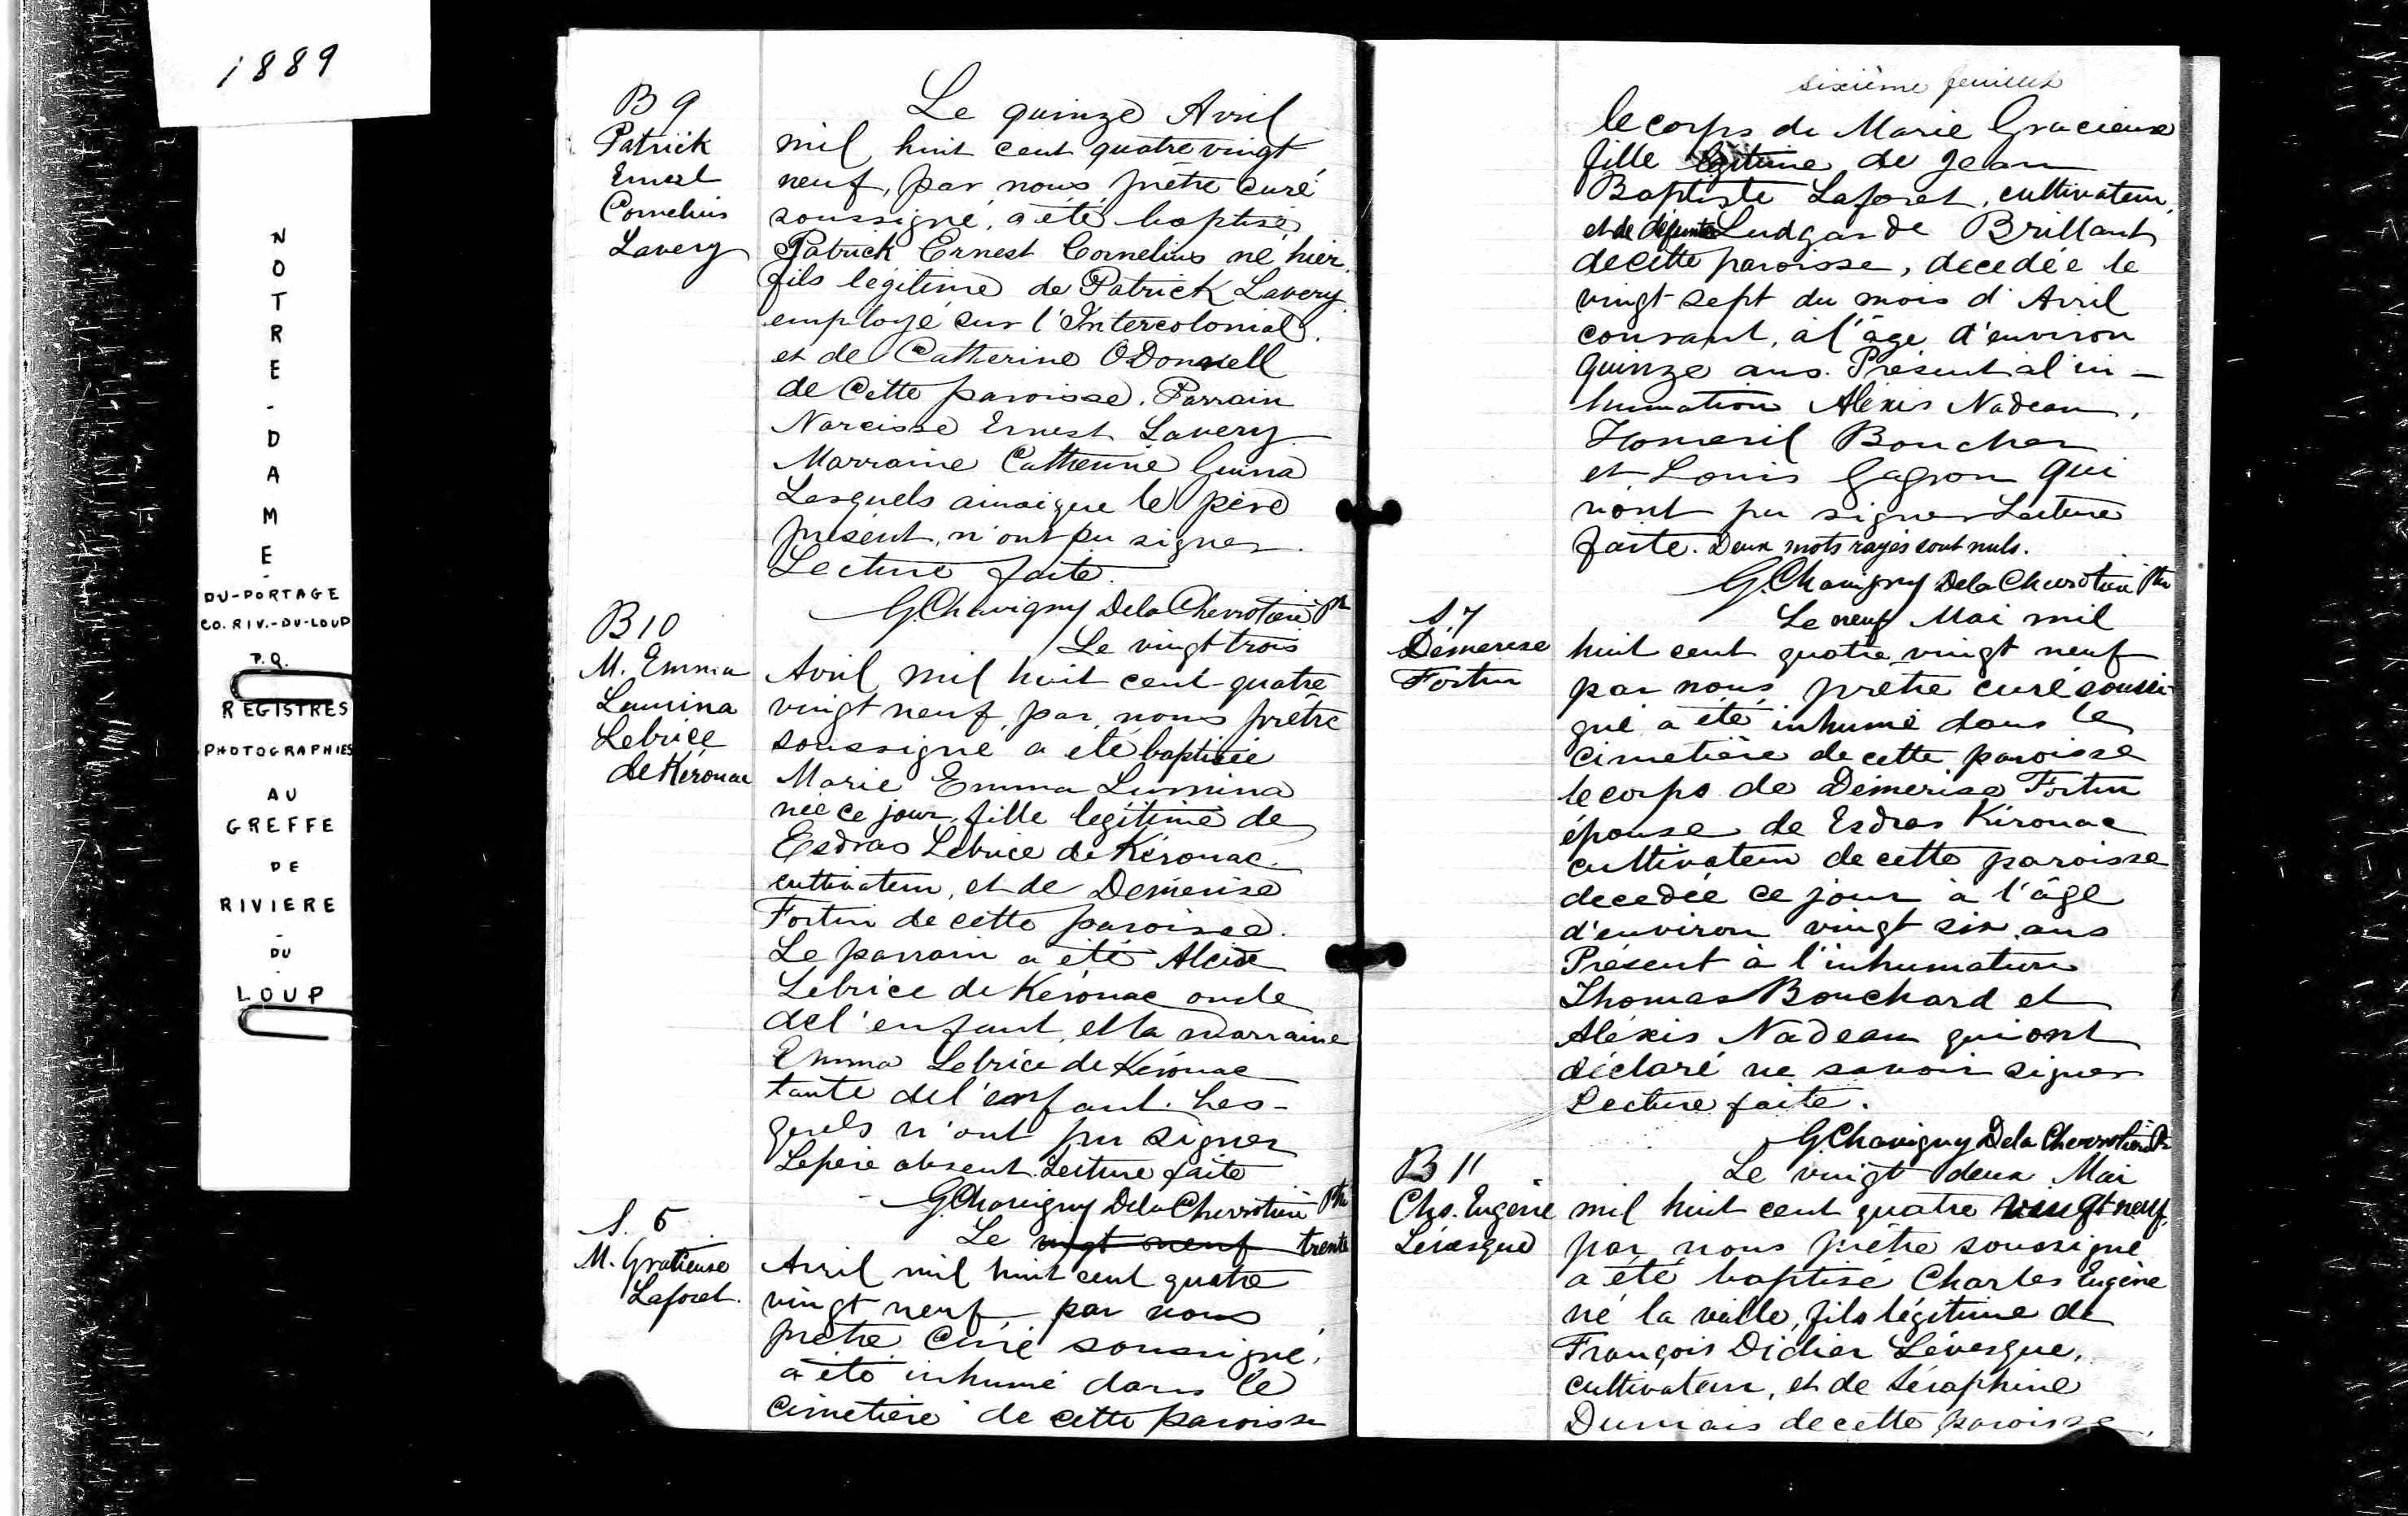 1889
NOTRE-DAME-
DU-PORTAGE
CO. RIV.-DU-LOUP
P.Q.
REGISTRES
PHOTOGRAPHIES
AU
GREFFE
DE
RIVIERE
-
DU
-
LOUP
B 9
Patrick
Ernest
Cornelius
Lavery
Le quinze Avril
mil huit cent quatre vingt
neuf, par nous prêtre curé
soussigné, a été baptisé
Patrick Ernest Cornelius né hier,
fils légitime de Patrick Lavery
employé sur l'Intercolonial,
et de Catherine O'Donnell
de cette paroisse. Parrain
Narcisse Ernest Lavery
Marraine Catherine Guina
Lesquels ainsi que le père
présent, n'ont pu signer.
Lecture faite.
G. Chavigny De la Chevrotière Ptr
B 10
M. Emma
Lumina
Lebrice
de Kérouac
Le vingt trois
Avril mil huit cent quatre
vingt neuf, par nous prêtre
soussigné a été baptisée
Marie Emma Lumina
née ce jour, fille légitime de
Esdras Lebrice de Kérouac
cultivateur, et de Démerise
Fortin de cette paroisse.
Le parrain a été Alcide
Lebrice de Kérouac oncle
de l'enfant, et la marraine
Emma Lebrice de Kérouac
tante de l'enfant. Les-
quels n'ont pu signer
Le père absent. Lecture faite
G. Chavigny De la Chevrotière Ptr
S. 6
M. Gratieuse
Laforet.
Le vingt neuf trente
Avril mil huit cent quatre
vingt neuf par nous
prêtre curé soussigné,
a été inhumé dans le
cimetière de cette paroisse
sixième feuillet
le corps de Marie Gracieuse
fille légitime de Jean
Baptiste Laforet, cultivateur,
et de défunte Ludgarde Brillant
de cette paroisse, décédée le
vingt sept du mois d'Avril
courant, à l'âge d'environ
quinze ans. Présent a l'in-
humation Alexis Nadeau,
Boucher
et Louis Gagnon qui
n'ont pu signer Lecture
faite. Deux mots rayés sont nuls.
G. Chavigny De la Chevrotière Ptr
S. 7
Démerise
Fortin
Le neuf Mai mil
huit cent quatre vingt neuf
par nous, prêtre curé soussi-
gné a été inhumé dans le
cimetière de cette paroisse
le corps de Démerise Fortin
épouse de Esdras Kirouac
cultivateur de cette paroisse
décédée ce jour à l'âge
d'environ vingt six ans
Présent à l'inhumation
Thomas Bouchard et
Alexis Nadeau qui ont
déclaré ne savoir signer
Lecture faite.
G. Chavigny De la Chevrotière Ptr
B 11
Chs. Eugène
Lévesque
Le vingt deux Mai
mil huit cent quatre vingt neuf,
par nous prêtre soussigné
a été baptisé Charles Eugène
né la veille, fils légitime de
François Didier Lévesque,
cultivateur, et de Séraphine
Dumais de cette paroisse,